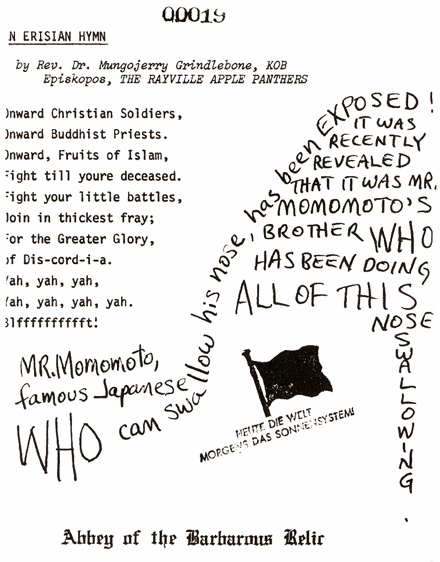 00019
N ERISIAN HYMN
by Rev. Dr. Mungojerry Grindlebone, KOB
Episkopos, THE RAYVILLE APPLE PANTHERS
Onward Christian Soldiers,
Onward Buddhist Priests.
Onward, Fruits of Islam,
Fight till youre deceased.
Fight your little battles,
Join in thickest fray;
For the Greater Glory,
of Dis-cord-i-a.
Yah, yah, yah,
Yah, yah, yah, yah.
Blfffffffffft!
MR. MOMOMOTO,
famous Japanese
WHO can swallow his nose, has been EXPOSED!
IT WAS
RECENTLY
REVEALED
THAT IT WAS MR.
MOMOMOTO'S
, BROTHER WHO
HAS BEEN DOING
ALL OF THIS
NOSE
SWALLOWING.
HEUTE DIE WELT
MORGENS DAS SONNENSYSTEM!
Abbey of the Barbarous Relic